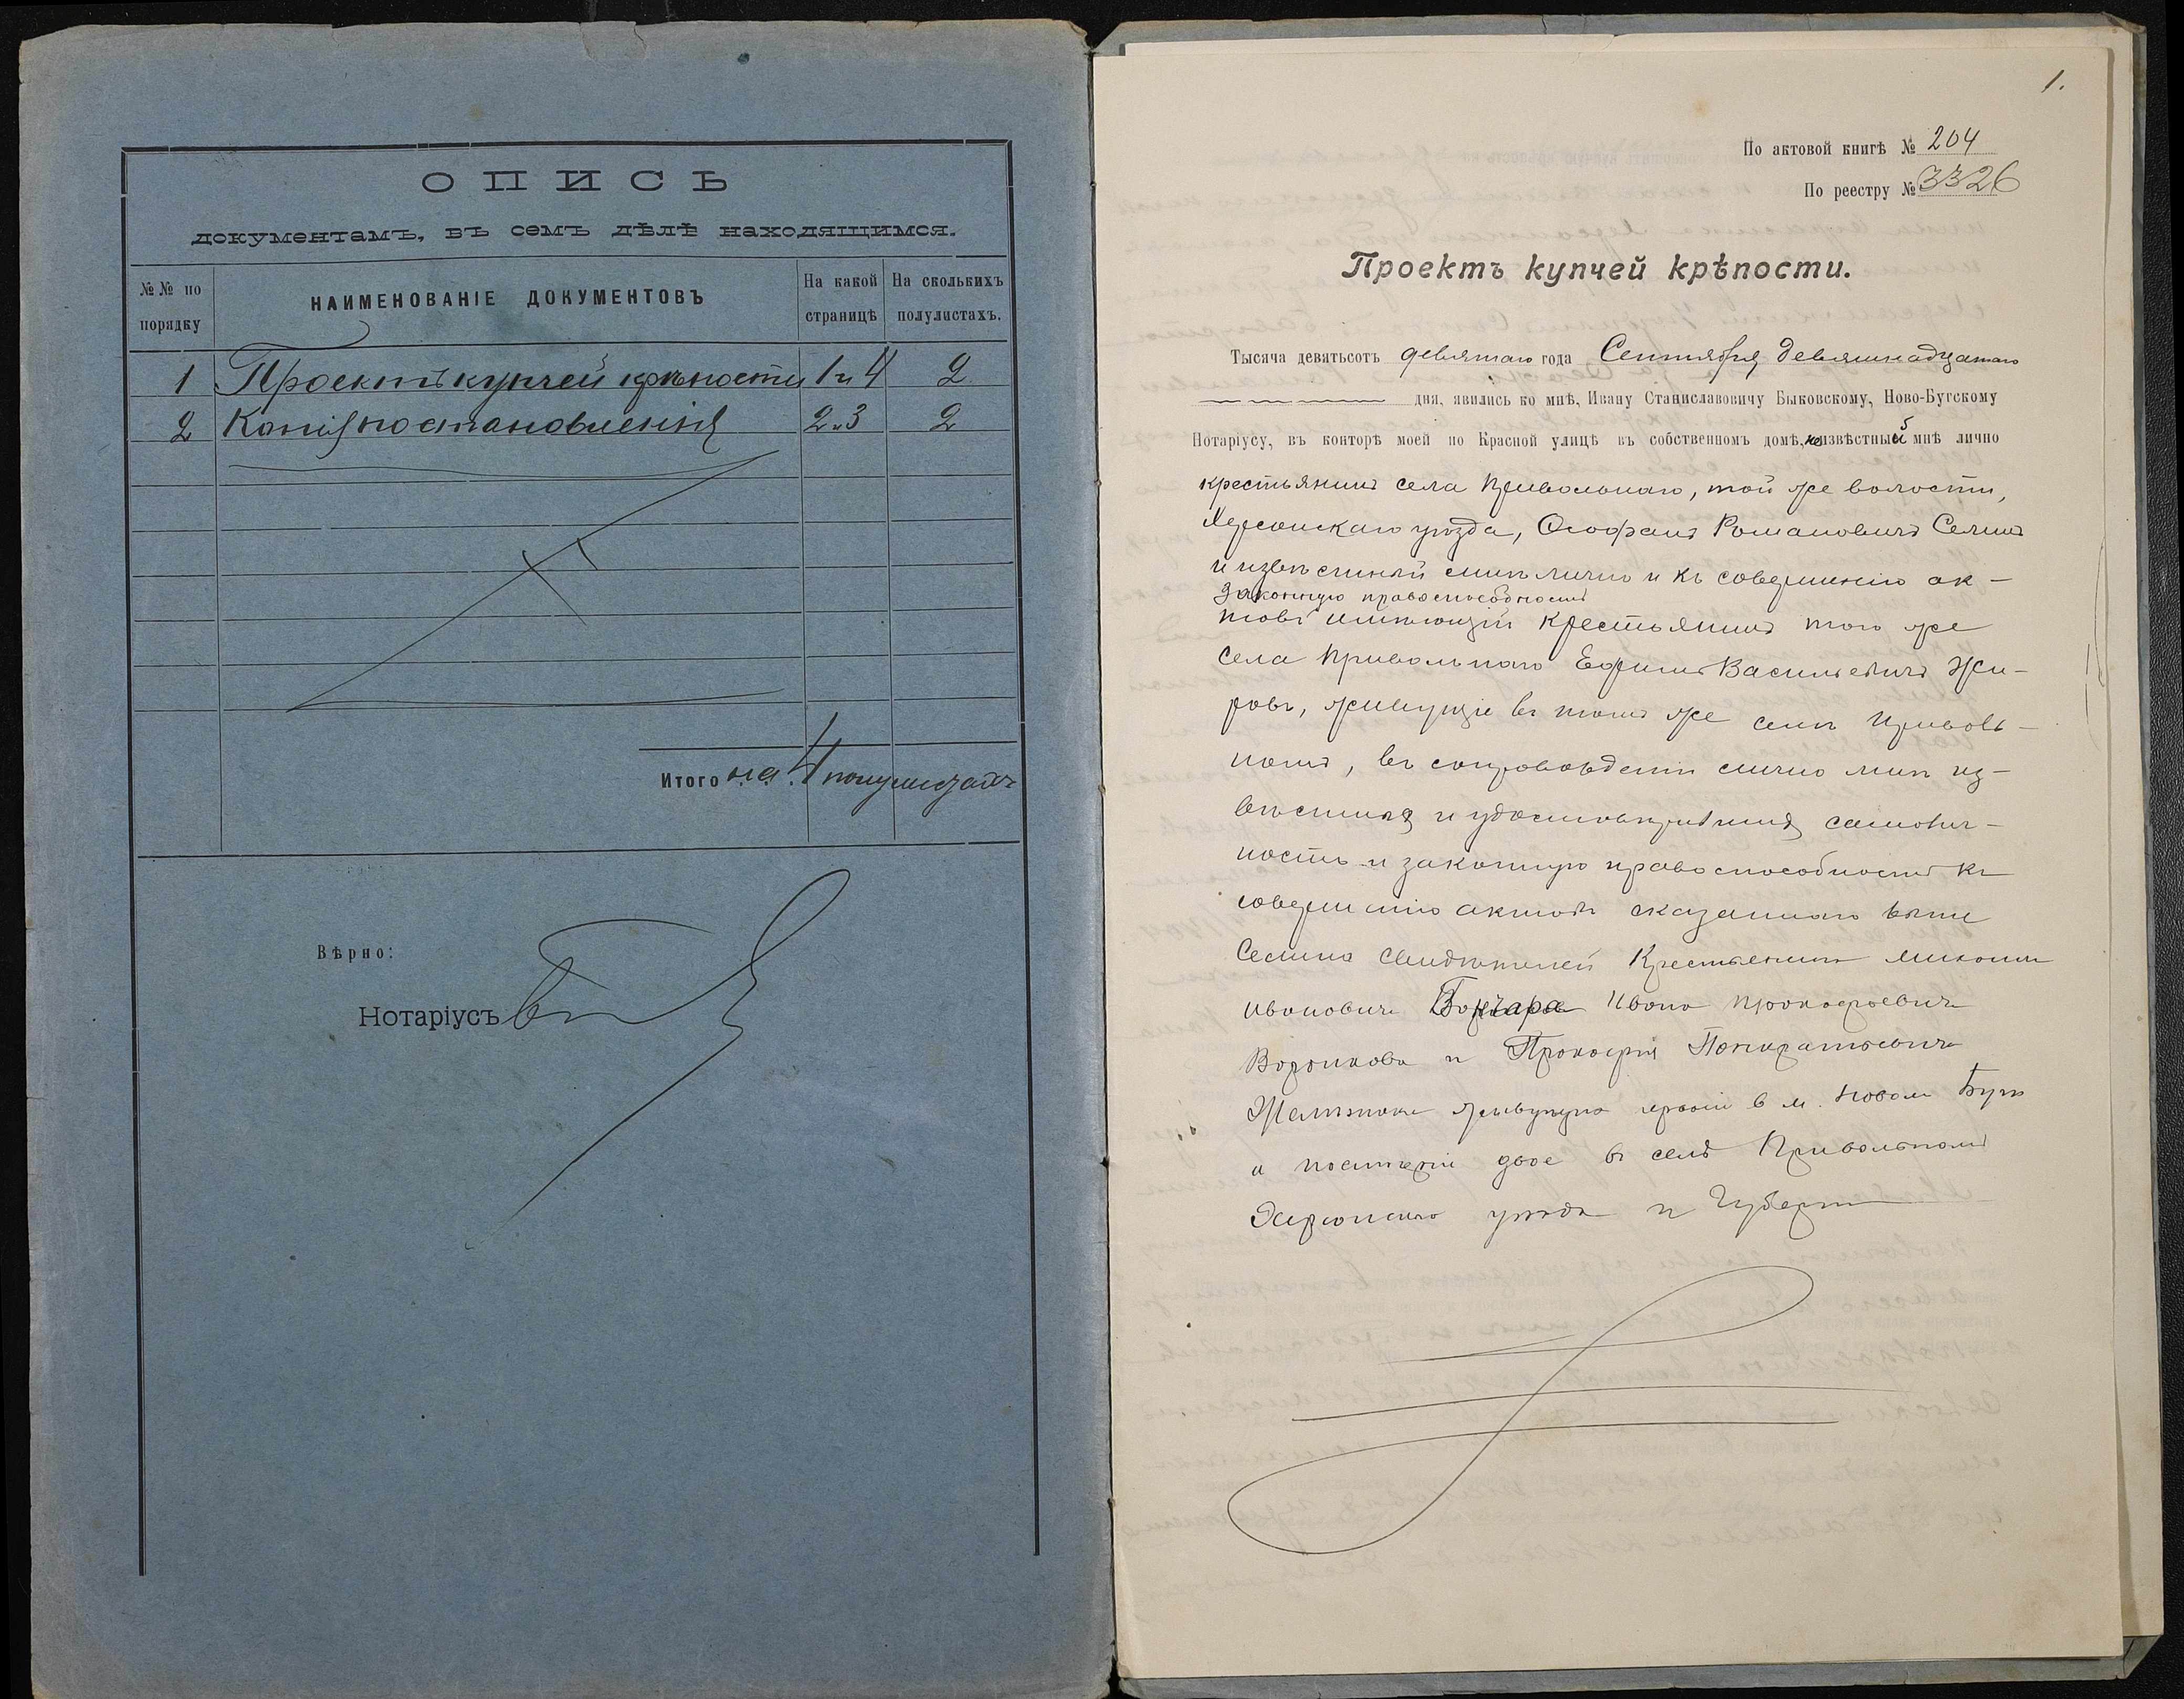 ОПИСЬ
документамъ, въ семъ дѣлѣ находящимся.
№№ по порядку
НАИМЕНОВАНІЕ ДОКУМЕНТОВЪ
На какой страницѣ
На сколькихъ полулистахъ.
1 Проектъ купчей крѣпости 1 и 4 2
2 Копія постановленія 2 и 3 2
Итого на 4 полулистахъ
Вѣрно:
Нотаріусъ
1.
По актовой книгѣ № 204
По реестру № 3326
Проектъ купчей крѣпости.
Тысяча девятьсотъ девятаго года Сентября девятнадцатаго
дня, явились ко мнѣ, Ивану Станиславовичу Быковскому, Ново-Бугскому
Нотаріусу, въ конторѣ моей по Красной улицѣ въ собственномъ домѣ, неизвѣстный мнѣ лично
крестьянинъ села Привольнаго, той же волости,
Херсонскаго уѣзда, Ѳеофанъ Романовичъ Селинъ
и извѣстный мнѣ лично и къ совершенію ак-
законную правоспособность
товъ имѣющій крестьянинъ того же
села Привольнаго Ефимъ Васильевичъ Жи-
ровъ, живущіе въ томъ же селѣ Приволь-
номъ, въ сопровожденіи лично мнѣ из-
вѣстныхъ и удостовѣрившихъ самолич-
ность и законную правоспособность къ
совершенію актовъ сказаннаго выше
Селина свидѣтелей Крестьянъ
Ивановича Гончара Ивана Прокофьевича
Воронкова и Прокофія Панкратьевича
живущихъ первый в м. Новом Бугѣ
а послѣдніе двое въ селѣ Привольномъ
Херсонскаго уѣзда и Губерніи